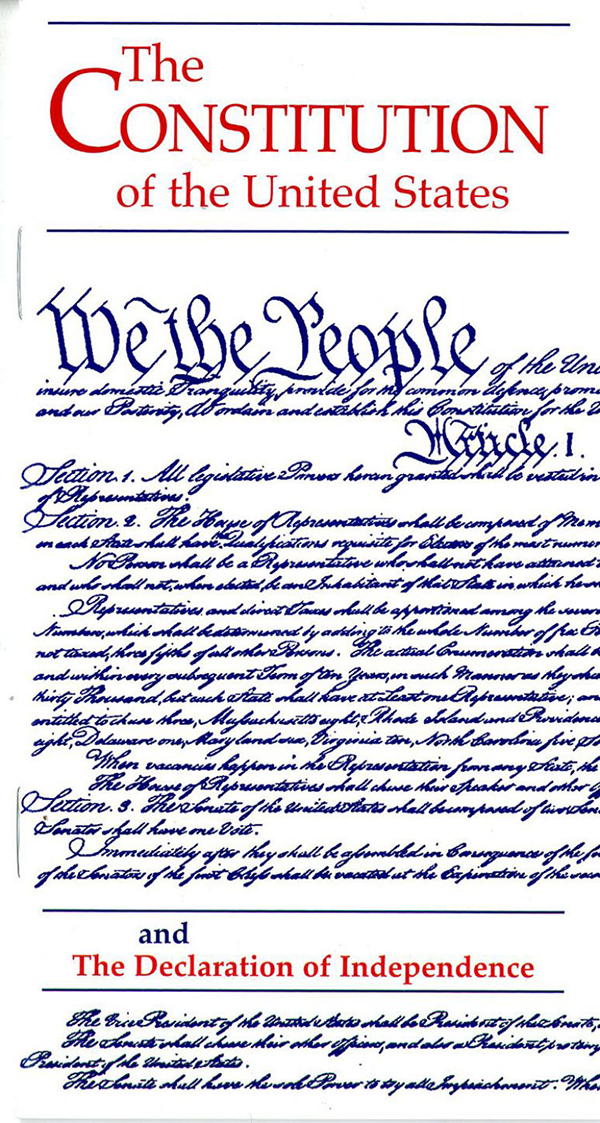 The
CONSTITUTION
of the United States
We the People of the Uni
insure domestic Tranquility, provide for the common defence, promo
and our Posterity, do ordain and establish this Constitution for the U
Article. I.
Section. 1. All legislative Powers herein granted shall be vested in
of Representatives.
Section. 2. The House of Representatives shall be composed of Mem
in each State shall have Qualifications requisite for Electors of the most numer
No Person shall be a Representative who shall not have attained t
and who shall not, when elected, be an Inhabitant of that State in which he sh
Representatives and direct Taxes shall be apportioned among the sever
Numbers, which shall be determined by adding to the whole Number of free Pe
not taxed, three fifths of all other Persons. The actual Enumeration shall b
and within every subsequent Term of ten Years, in such Manner as they sha
thirty Thousand, but each State shall have at Least one Representative; an
entitled to chuse three, Massachusetts eight, Rhode Island and Providence
eight, Delaware one, Maryland six, Virginia ten, North Carolina five, So
When vacancies happen in the Representation from any State, the
The House of Representatives shall chuse their Speaker and other O
Section. 3. The Senate of the United States shall be composed of two Sena
Senator shall have one Vote.
Immediately after they shall be assembled in Consequence of the fi
of the Senators of the first Class shall be vacated at the Expiration of the seco
and
The Declaration of Independence
The Vice President of the United States shall be President of the Senate,
The Senate shall chuse their other Officers, and also a President pro tempo
President of the United States.
The Senate shall have the sole Power to try all Impeachments. Whe